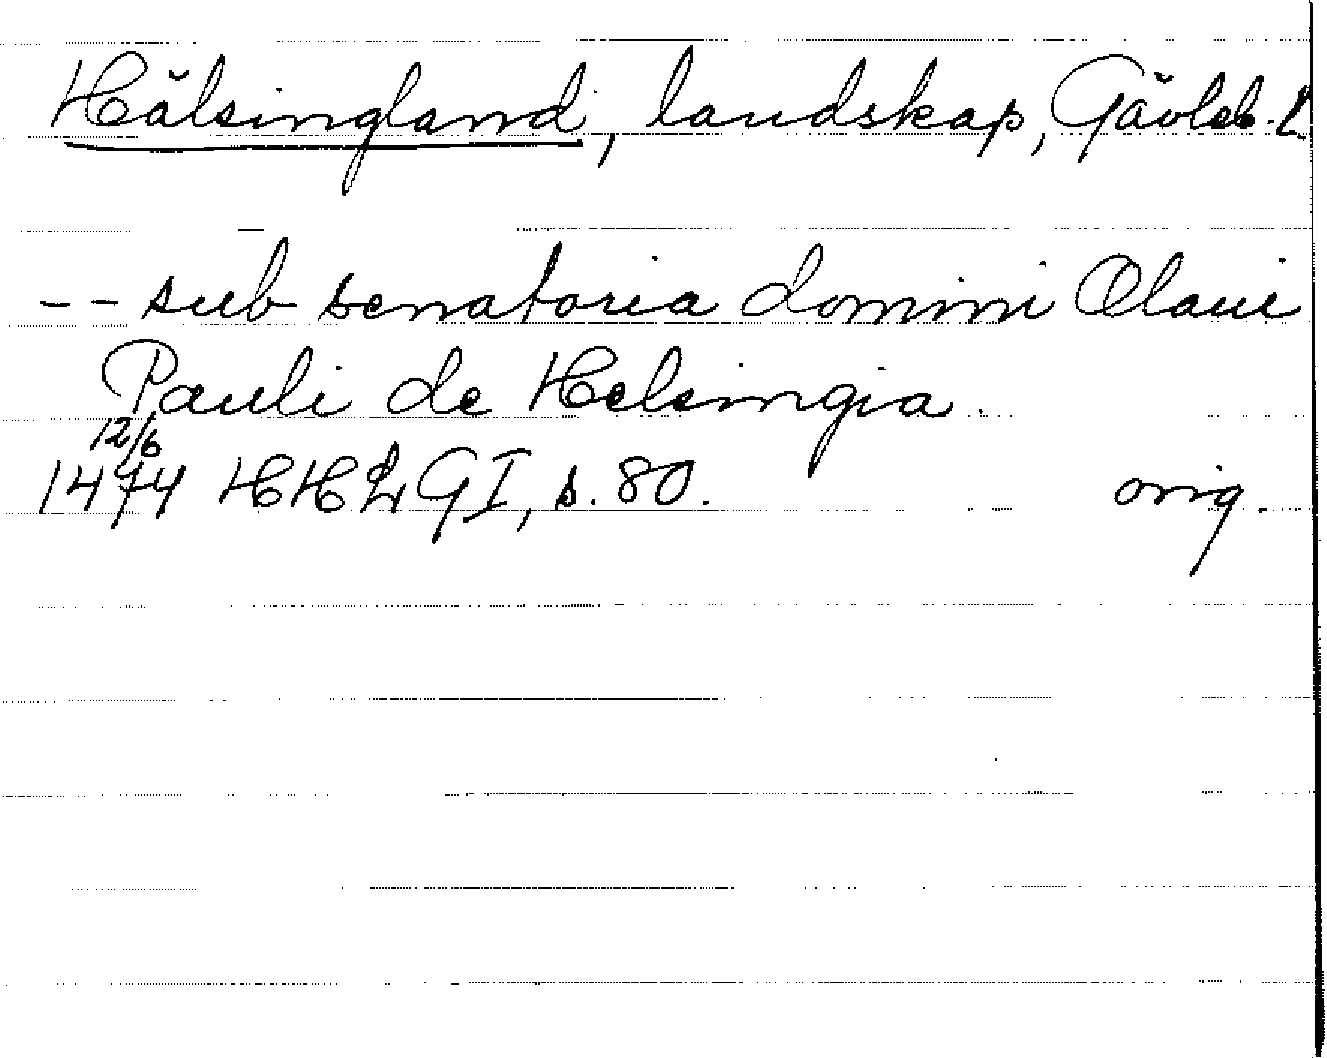 Hälsingland, landskap, Gävleb. L
-- sub senatoria domini Olaui
Pauli de Helsingia.
12/6
1474 HHLGI, s. 80. orig.